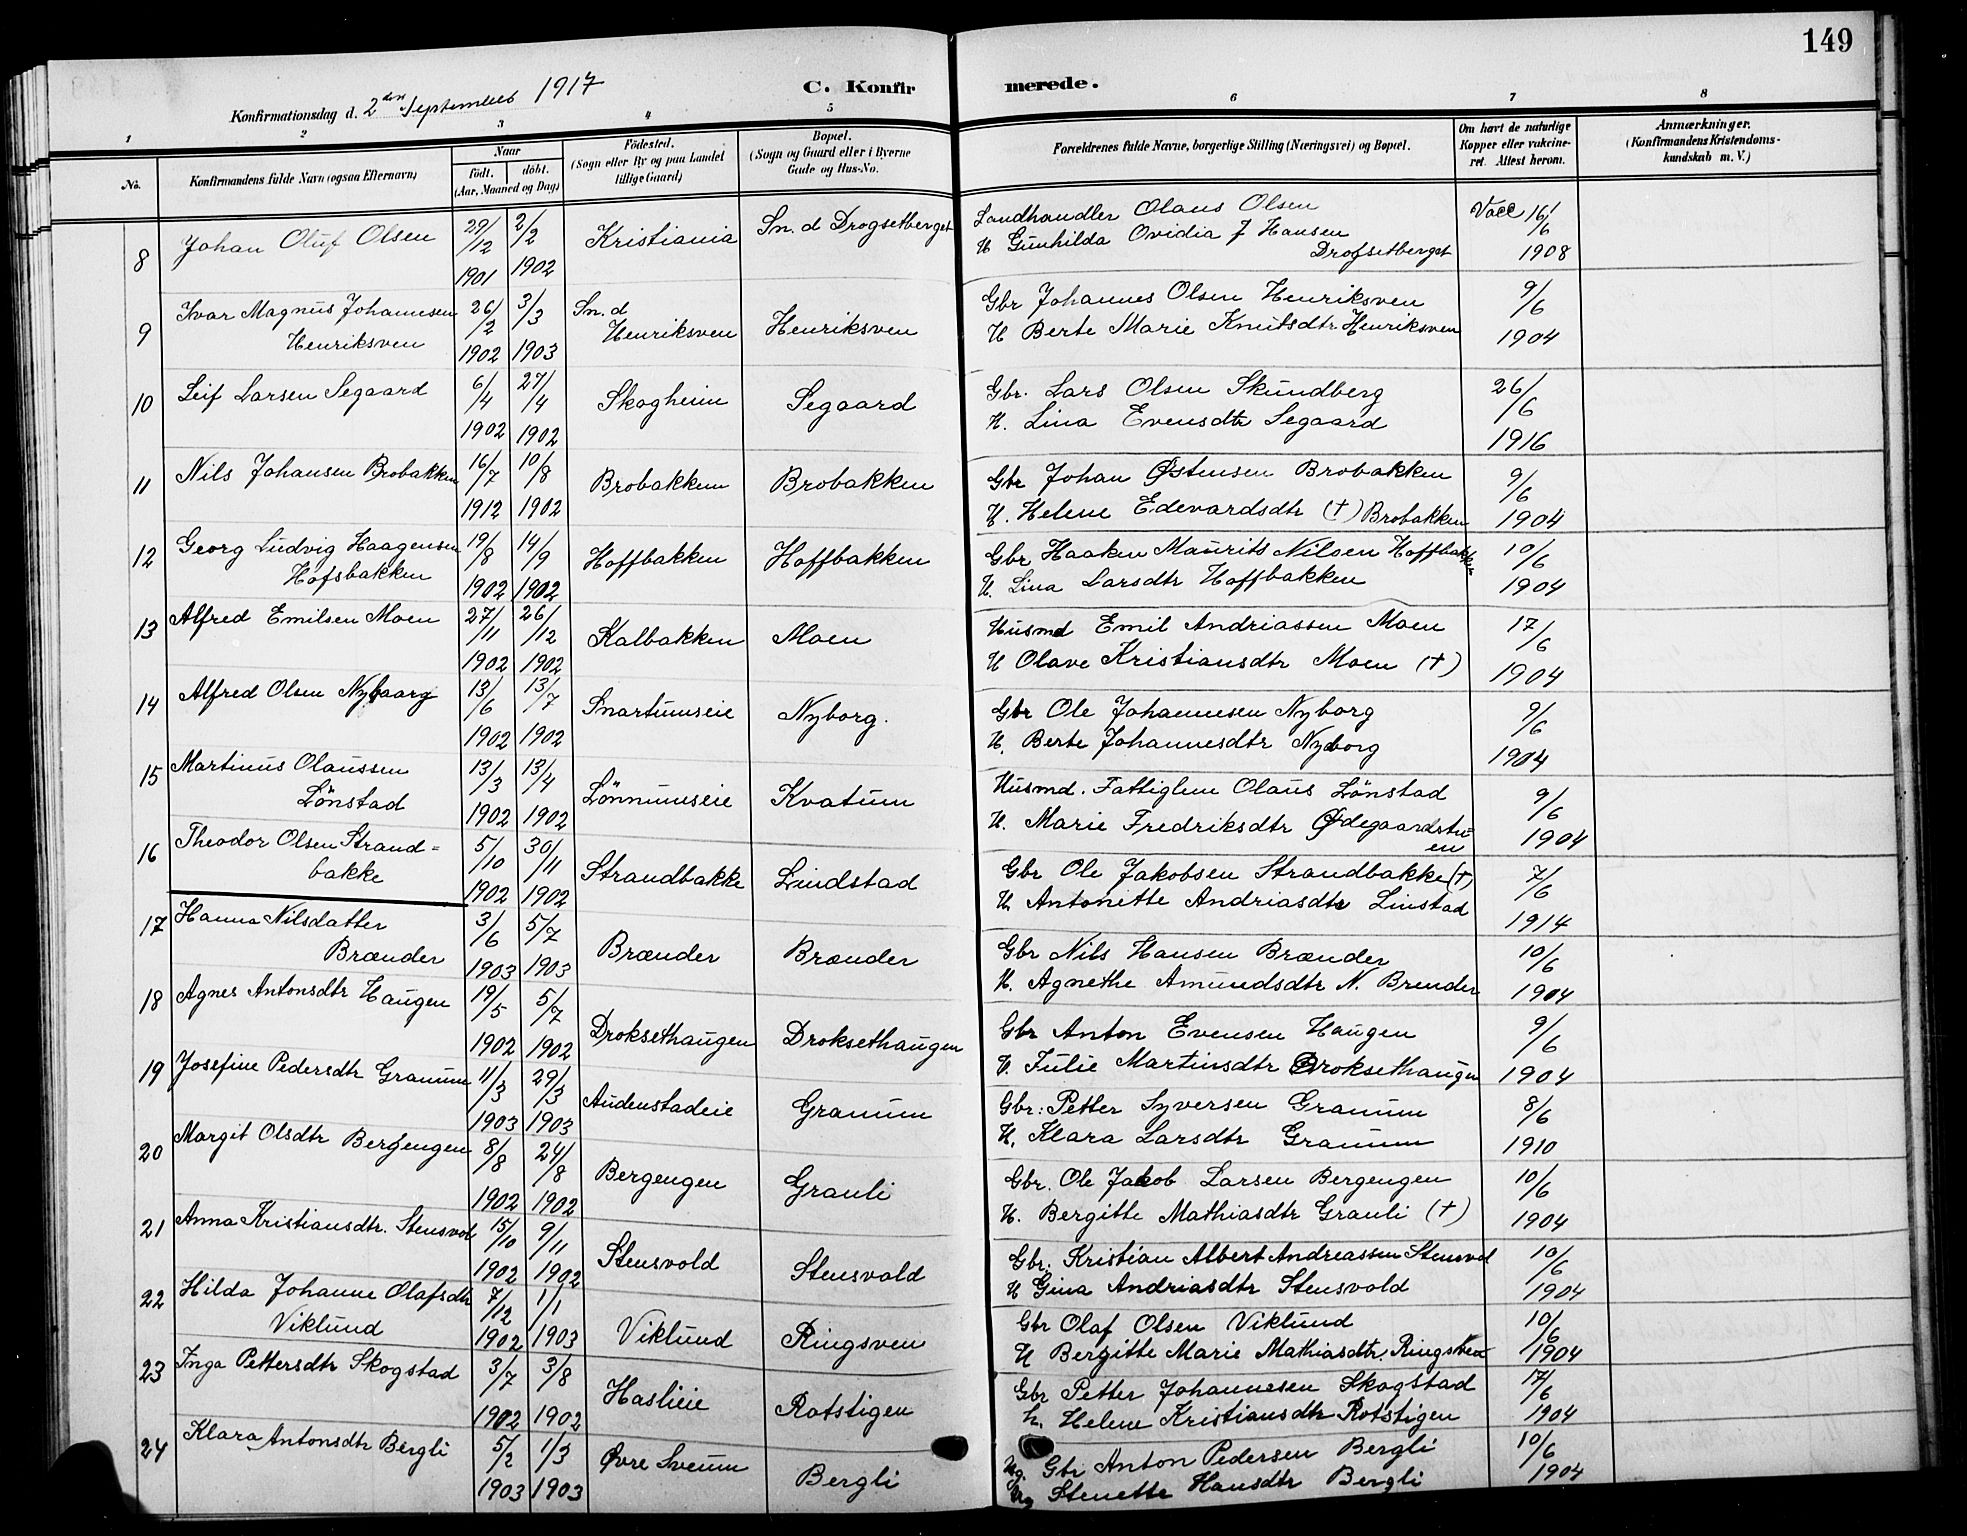 149
Konfirmationsdag d. 2den September 1917
C. Konfirmerede.
1 2 3 4 5 6 7 8
No. Konfirmandens fulde Navn (ogsaa Efternavn) Naar født. døbt. (Aar, Maaned og Dag) Fødested. (Sogn eller By og paa Landet tillige Gaard) Bopæl. (Sogn og Gaard eller i Byerne Gade og Hus-No. Forældrenes fulde Navne, borgerlige Stilling (Næringsvei) og Bopæl. Om havt de naturlige Kopper eller vakcineret. Attest herom. Anmærkninger. (Konfirmandens Kristendomskundskab m. V.)
8 Johan Oluf Olsen 29/12 1901 2/2 1902 Kristiania Sn. d Drogsetberget Landhandler Olaus Olsen Vacc 16/6 1908
H Gunhilda Ovidia f Hansen
Drofsetberget
9 Ivar Magnus Johannesen 26/2 1902 3/3 1903 Sn. d Henriksven Henriksven Gbr Johannes Olsen Henriksven 9/6 1904
Henriksven H Berte Marie Knutsdtr Henriksven
10 Leif Larsen Segaard 6/4 1902 27/4 1902 Skogheim Segaard Gbr. Lars Olsen Skundberg 26/6 1916
H. Lina Evensdtr Segaard
11 Nils Johansen Brobakken 16/7 1912 10/8 1902 Brobakken Brobakken Gbr Johan Østensen Brobakken 9/6 1904
H. Helene Edevardsdtr (†) Brobakken
12 Georg Ludvig Haagensen 19/8 1902 14/9 1902 Hoffbakken Hoffbakken Gbr Haaken Maurits Nilsen Hoffbakken 10/6 1904
Hofsbakken H. Lina Larsdtr Hoffbakken
13 Alfred Emilsen Moen 27/11 1902 26/12 1902 Kalbakken Moen Husmd Emil Andriassen Moen 17/6 1904
H Olave Kristiansdtr Moen (†)
14 Alfred Olsen Nybaarg 13/6 1902 13/7 1902 Snartumseie Nyborg. Gbr Ole Johannesen Nyborg 9/6 1904
H. Berte Johannesdtr Nyborg
15 Martinus Olaussen 13/3 1902 13/4 1902 Lönnumseie Kvatum Husmd. Fattiglem Olaus Lönstad 9/6 1904
Lönstad H. Marie Fredriksdtr
16 Theodor Olsen Strand= 5/10 1902 30/11 1902 Strandbakke Lindstad Gbr Ole Jakobsen Strandbakke (†) 7/6 1914
bakke H. Antonette Andriasdtr Linstad
17 Hanna Nilsdatter 3/6 1903 5/7 1903 Brænder Brænder Gbr Nils Hansen Brænder 10/6 1904
Brænder H. Agnethe Amundsdtr N. Brender
18 Agnes Antonsdtr Haugen 19/5 1902 5/7 1902 Droksethaugen Droksethaugen Gbr Anton Evensen Haugen 9/6 1904
H. Julie Martinsdtr Droksethaugen
19 Josefine Pedersdtr Granum 11/3 1903 29/3 1903 Audenstadeie Granum Gbr: Petter Syversen Granum 8/6 1910
H. Klara Larsdtr Granum
20 Margit Olsdtr Bergengen 8/8 1902 24/8 1902 Bergengen Granli Gbr. Ole Jakob Larsen Bergengen 10/6 1904
H. Bergitte Mathiasdtr Granli (†)
21 Anna Kristiansdtr. Stensvol 15/10 1902 9/11 1902 Stensvold Stensvold Gbr: Kristian Albert Andreassen Stensvol 10/6 1904
H Gina Andriasdtr Stensvold
22 Hilda Johanne Olafsdtr 7/12 1902 1/1 1903 Viklund Ringsven Gbr Olaf Olsen Viklund 10/6 1904
Viklund H Bergitte Marie Mathiasdtr. Ringsven
23 Inga Pettersdtr Skogstad 3/7 1902 3/8 1902 Haslieie Rotstigen Gbr Petter Johannesen Skogstad 17/6 1904
h. Helene Kristiansdtr Rotstigen
24 Klara Antonsdtr Bergli 5/2 1903 1/3 1903 Øvre Sveum Bergli Gbr Anton Pedersen Bergli 10/6 1904
Stenette Hansdtr Bergli